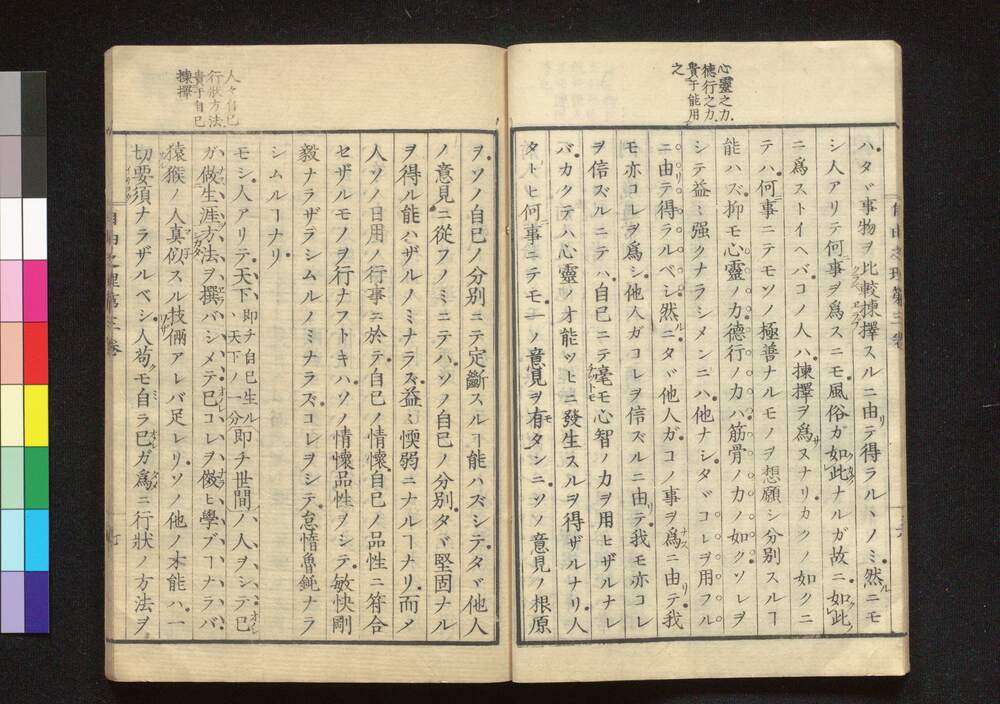 心靈之力
德行之力
貴于能用
之
ハタヾ事物ヲ比較揀擇スルニ由テ得ラルヽノミ然ニモ
シ人アリテ何事ヲ爲スニモ風俗ガ如此ナルガ故ニ如此
ニ爲ストイヘバコノ人ハ揀擇ヲ爲スナリカク如クニ
テハ何事ニテモソノ極善ナルモノヲ想願シ分別スルヿ
能ハズ抑モ心靈ノ力德行ノ力ハ筋骨ノ力ノ如クソレヲ
シテ益〻强クナラシメンニハ他ナシタヾコレヲ用フル
ニ由テ得ラルベシ然ニタヾ他人ガコノ事ヲ爲ニ由テ我
モ亦コレヲ爲シ他人ガコレヲ信ズルニ由テ我モ亦コレ
ヲ信ズルニテハ自己ニテ毫モ心智ノ力ヲ用ヒザルナレ
バカクテハ心靈ノ才能ツヒニ發生スルヲ得ザルナリ人
タトヒ何事ニテモ一ノ意見ヲ有タンニソノ意見ノ根原
人々自己
行狀方法
貴于自己
揀擇
ヲソノ自己ノ分別ニテ定斷スルヿ能ハズシテタヾ他人
ノ意見ニ從フノミニテハソノ自己ノ分別タヾ堅固ナル
ヲ得ル能ハザルノミナラズ益〻愞弱ニナルヿナリ而メ
人ソノ日用ノ行事ニ於テ自己ノ情懷自己ノ品性ニ符合
セザルモノヲ行ナフトキハソノ情懷品性ヲシテ敏快剛
毅ナラザラシムルノミナラズコレヲシテ怠惰魯鈍ナラ
シムルヿナリ
モシ人アリテ天下即チ自己生ルヽ天下ノ一分即チ世間ノ人ヲシテ已
ガ做生涯方法ヲ撰バシメテ已コレヲ傚ヒ學ブヿナラバ
猿猴ノ人真似スル技倆アレバ足レリソノ他ノ才能ハ一
切要須ナラザルベシ人苟モ自ラ已ガ爲ニ行狀ノ方法ヲ
自由之理第三卷